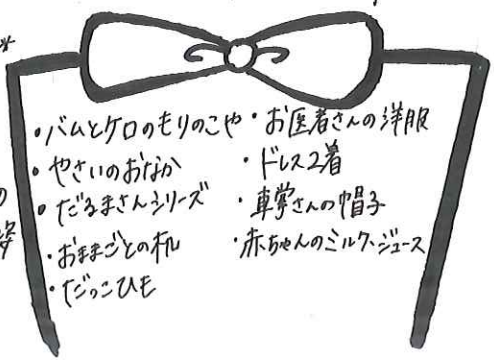 ・バムとケロのもりのこや
・やさいのおなか
・だるまさんシリーズ
・おままごとの机
・だっこひも
・お医者さんの洋服
・ドレス2着
・車掌さんの帽子
・赤ちゃんのミルク、ジュース
の